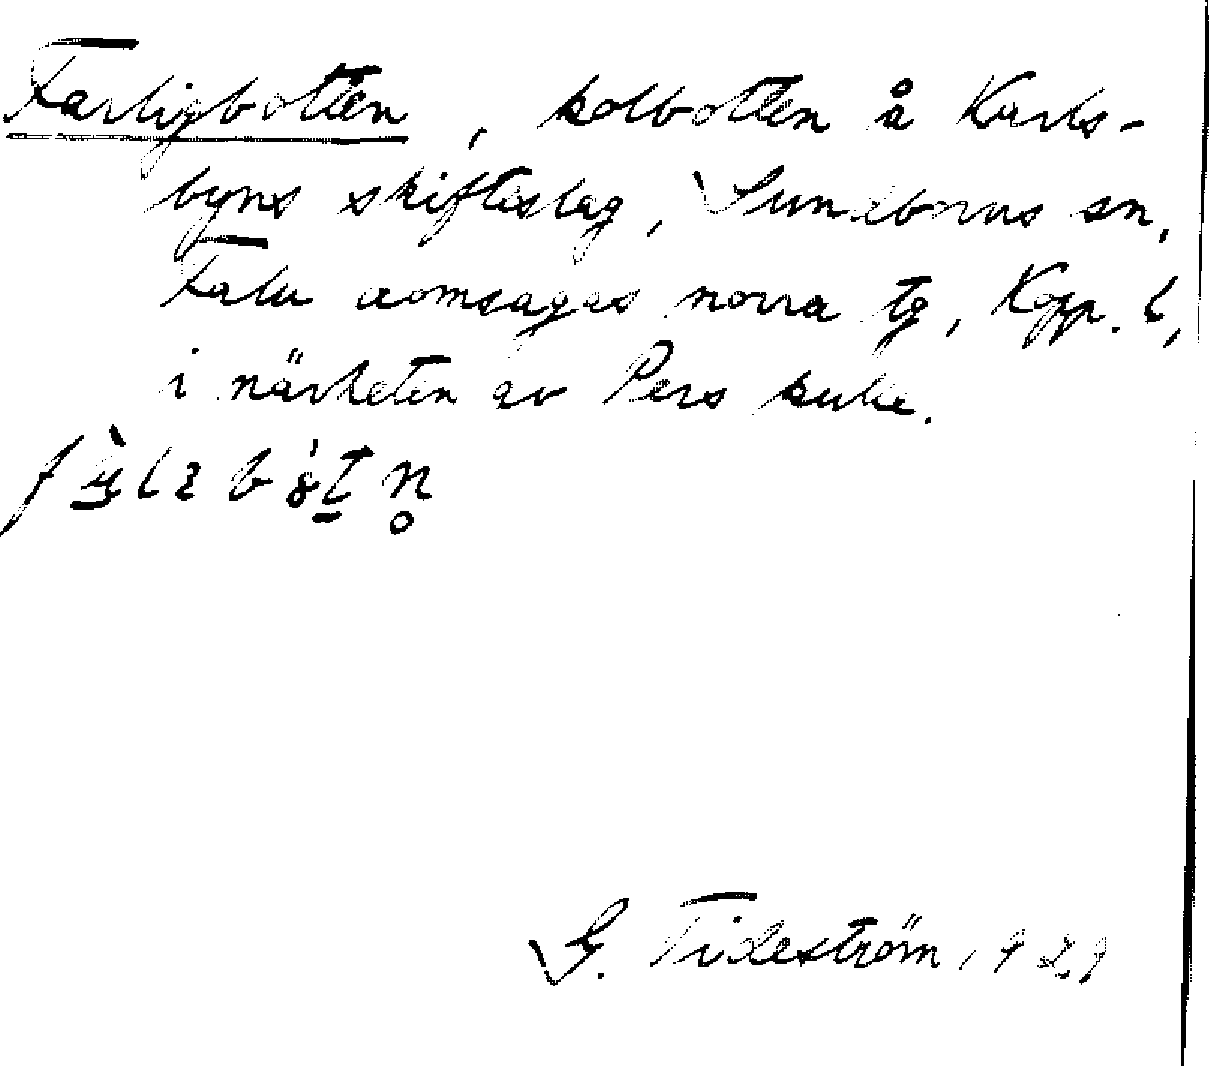 Farligbotten, kolbotten å Karls-
byns skifteslag, Sundborns sn,
Falu domsagas norra tg, Kopp. l,
i närheten av Pers kulle.
G. Tideström 1929